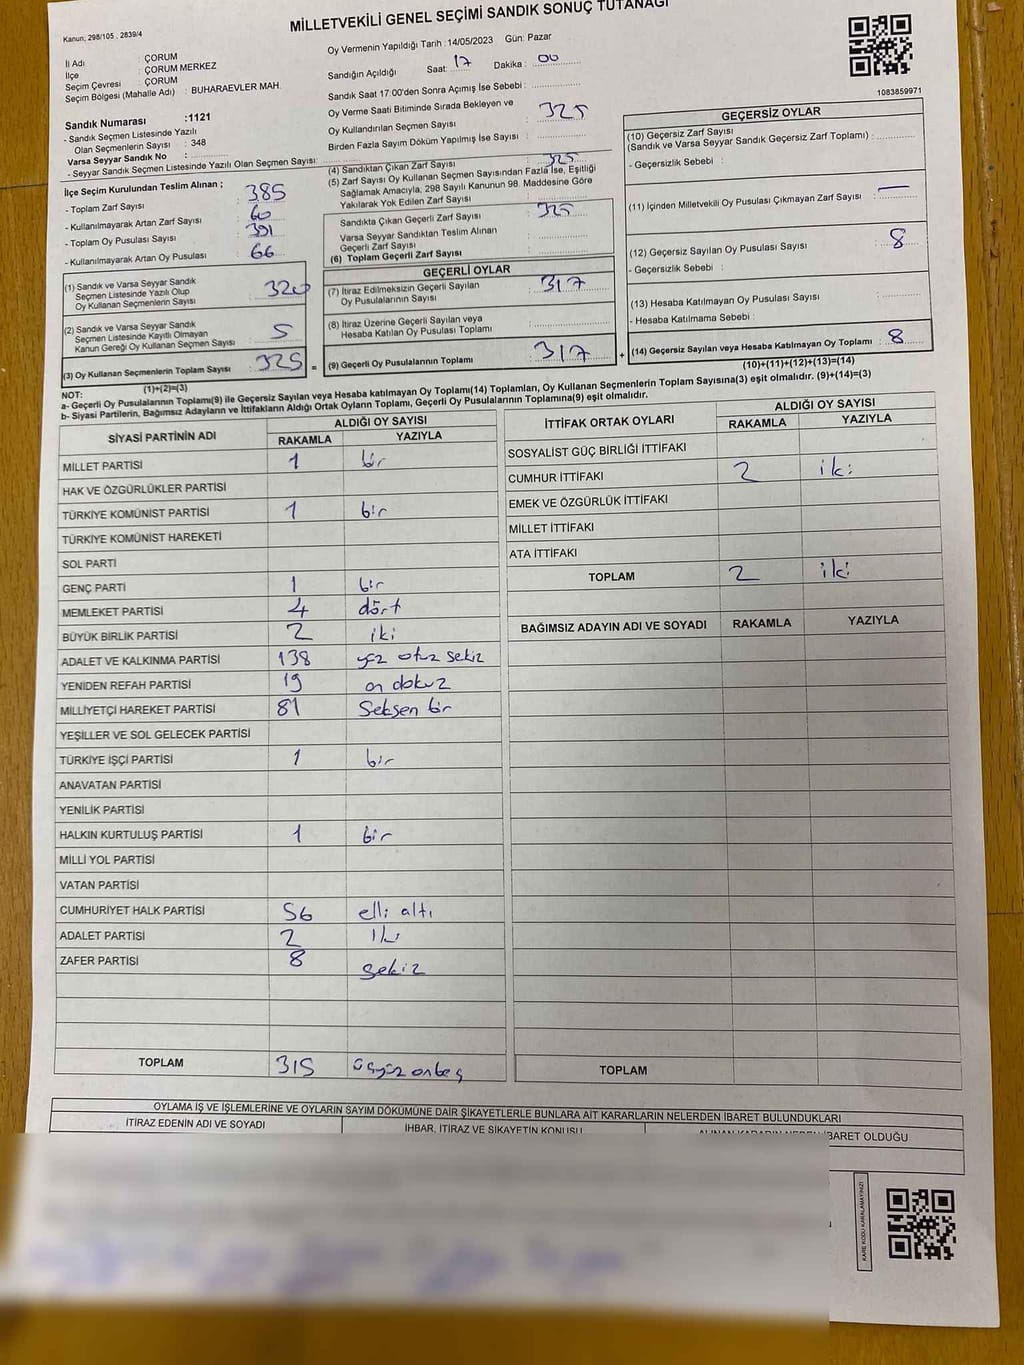 MİLLETVEKİLİ GENEL SEÇİMİ SANDIK SONUÇ TUTANAĞI
Kanun; 298/105 , 2839/4
İl Adı : ÇORUM
İlçe : ÇORUM MERKEZ
Seçim Çevresi : ÇORUM
Seçim Bölgesi (Mahalle Adı) : BUHARAEVLER MAH.
Oy Vermenin Yapıldığı Tarih : 14/05/2023 Gün: Pazar
Sandığın Açıldığı Saat: 17 Dakika : 00
Sandık Saat 17:00'den Sonra Açımış İse Sebebi :
Oy Verme Saati Bitiminde Sırada Bekleyen ve
Oy Kullandırılan Seçmen Sayısı : 325
Birden Fazla Sayım Döküm Yapılmış İse Sayısı :
1083859971
Sandık Numarası :1121
- Sandık Seçmen Listesinde Yazılı
Olan Seçmenlerin Sayısı : 348
Varsa Seyyar Sandık No :
- Seyyar Sandık Seçmen Listesinde Yazılı Olan Seçmen Sayısı:
İlçe Seçim Kurulundan Teslim Alınan ;
- Toplam Zarf Sayısı : 385
- Kullanılmayarak Artan Zarf Sayısı : 60
- Toplam Oy Pusulası Sayısı : 391
- Kullanılmayarak Artan Oy Pusulası : 66
(1) Sandık ve Varsa Seyyar Sandık
Seçmen Listesinde Yazılı Olup
Oy Kullanan Seçmenlerin Sayısı : 320
(2) Sandık ve Varsa Seyyar Sandık
Seçmen Listesinde Kayıtlı Olmayan
Kanun Gereği Oy Kullanan Seçmen Sayısı : 5
(3) Oy Kullanan Seçmenlerin Toplam Sayısı : 325
(1)+(2)=(3)
(4) Sandıktan Çıkan Zarf Sayısı : 325
(5) Zarf Sayısı Oy Kullanan Seçmen Sayısından Fazla İse, Eşitliği
Sağlamak Amacıyla, 298 Sayılı Kanunun 98. Maddesine Göre
Yakılarak Yok Edilen Zarf Sayısı :
Sandıkta Çıkan Geçerli Zarf Sayısı : 325
Varsa Seyyar Sandıktan Teslim Alınan
Geçerli Zarf Sayısı :
(6) Toplam Geçerli Zarf Sayısı :
GEÇERLİ OYLAR
(7) İtiraz Edilmeksizin Geçerli Sayılan
Oy Pusulalarının Sayısı : 317
(8) İtiraz Üzerine Geçerli Sayılan veya
Hesaba Katılan Oy Pusulası Toplamı :
= (9) Geçerli Oy Pusulalarının Toplamı : 317 +
GEÇERSİZ OYLAR
(10) Geçersiz Zarf Sayısı
(Sandık ve Varsa Seyyar Sandık Geçersiz Zarf Toplamı) :
- Geçersizlik Sebebi :
(11) İçinden Milletvekili Oy Pusulası Çıkmayan Zarf Sayısı : —
(12) Geçersiz Sayılan Oy Pusulası Sayısı : 8
- Geçersizlik Sebebi :
(13) Hesaba Katılmayan Oy Pusulası Sayısı :
- Hesaba Katılmama Sebebi :
(14) Geçersiz Sayılan veya Hesaba Katılmayan Oy Toplamı : 8
(10)+(11)+(12)+(13)=(14)
NOT:
a- Geçerli Oy Pusulalarının Toplamı(9) ile Geçersiz Sayılan veya Hesaba katılmayan Oy Toplamı(14) Toplamları, Oy Kullanan Seçmenlerin Toplam Sayısına(3) eşit olmalıdır. (9)+(14)=(3)
b- Siyasi Partilerin, Bağımsız Adayların ve İttifakların Aldığı Ortak Oyların Toplamı, Geçerli Oy Pusulalarının Toplamına(9) eşit olmalıdır.
SİYASİ PARTİNİN ADI ALDIĞI OY SAYISI
RAKAMLA YAZIYLA
MİLLET PARTİSİ 1 bir
HAK VE ÖZGÜRLÜKLER PARTİSİ
TÜRKİYE KOMÜNİST PARTİSİ 1 bir
TÜRKİYE KOMÜNİST HAREKETİ
SOL PARTİ
GENÇ PARTİ 1 bir
MEMLEKET PARTİSİ 4 dört
BÜYÜK BİRLİK PARTİSİ 2 iki
ADALET VE KALKINMA PARTİSİ 138 yüz otuz sekiz
YENİDEN REFAH PARTİSİ 19 on dokuz
MİLLİYETÇİ HAREKET PARTİSİ 81 Seksen bir
YEŞİLLER VE SOL GELECEK PARTİSİ
TÜRKİYE İŞÇİ PARTİSİ 1 bir
ANAVATAN PARTİSİ
YENİLİK PARTİSİ
HALKIN KURTULUŞ PARTİSİ 1 bir
MİLLİ YOL PARTİSİ
VATAN PARTİSİ
CUMHURİYET HALK PARTİSİ 56 elli altı
ADALET PARTİSİ 2 iki
ZAFER PARTİSİ 8 sekiz
TOPLAM 315 üçyüz onbeş
İTTİFAK ORTAK OYLARI ALDIĞI OY SAYISI
RAKAMLA YAZIYLA
SOSYALİST GÜÇ BİRLİĞİ İTTİFAKI
CUMHUR İTTİFAKI 2 iki
EMEK VE ÖZGÜRLÜK İTTİFAKI
MİLLET İTTİFAKI
ATA İTTİFAKI
TOPLAM 2 iki
BAĞIMSIZ ADAYIN ADI VE SOYADI RAKAMLA YAZIYLA
TOPLAM
OYLAMA İŞ VE İŞLEMLERİNE VE OYLARIN SAYIM DÖKÜMÜNE DAİR ŞİKAYETLERLE BUNLARA AİT KARARLARIN NELERDEN İBARET BULUNDUKLARI
İTİRAZ EDENİN ADI VE SOYADI İHBAR, İTİRAZ VE ŞİKAYETİN KONUSU ALINAN KARARIN NEDEN İBARET OLDUĞU
KARE KODU KARALAMAYINIZ!